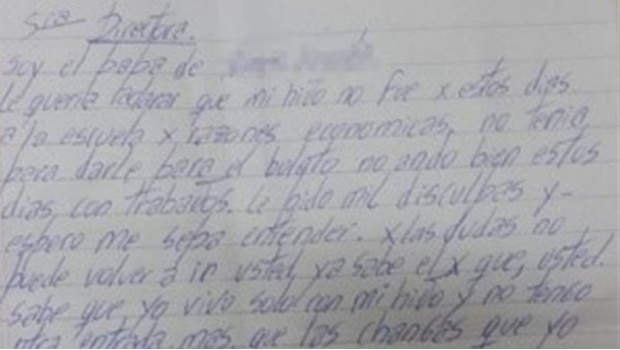 Sra Directora.
soy el papa de
le queria aclarar que mi hijo no fue x estos dias
a la escuela x razones economicas, no tenia
para darle para el boleto no ando bien estos
dias con trabajos. le pido mil disculpas y-
espero me sepa entender. x las dudas no
puede volver a ir usted ya sabe el x que, usted.
sabe que, yo vivo solo con mi hijo y no tengo
otra entrada mas que las changas que yo